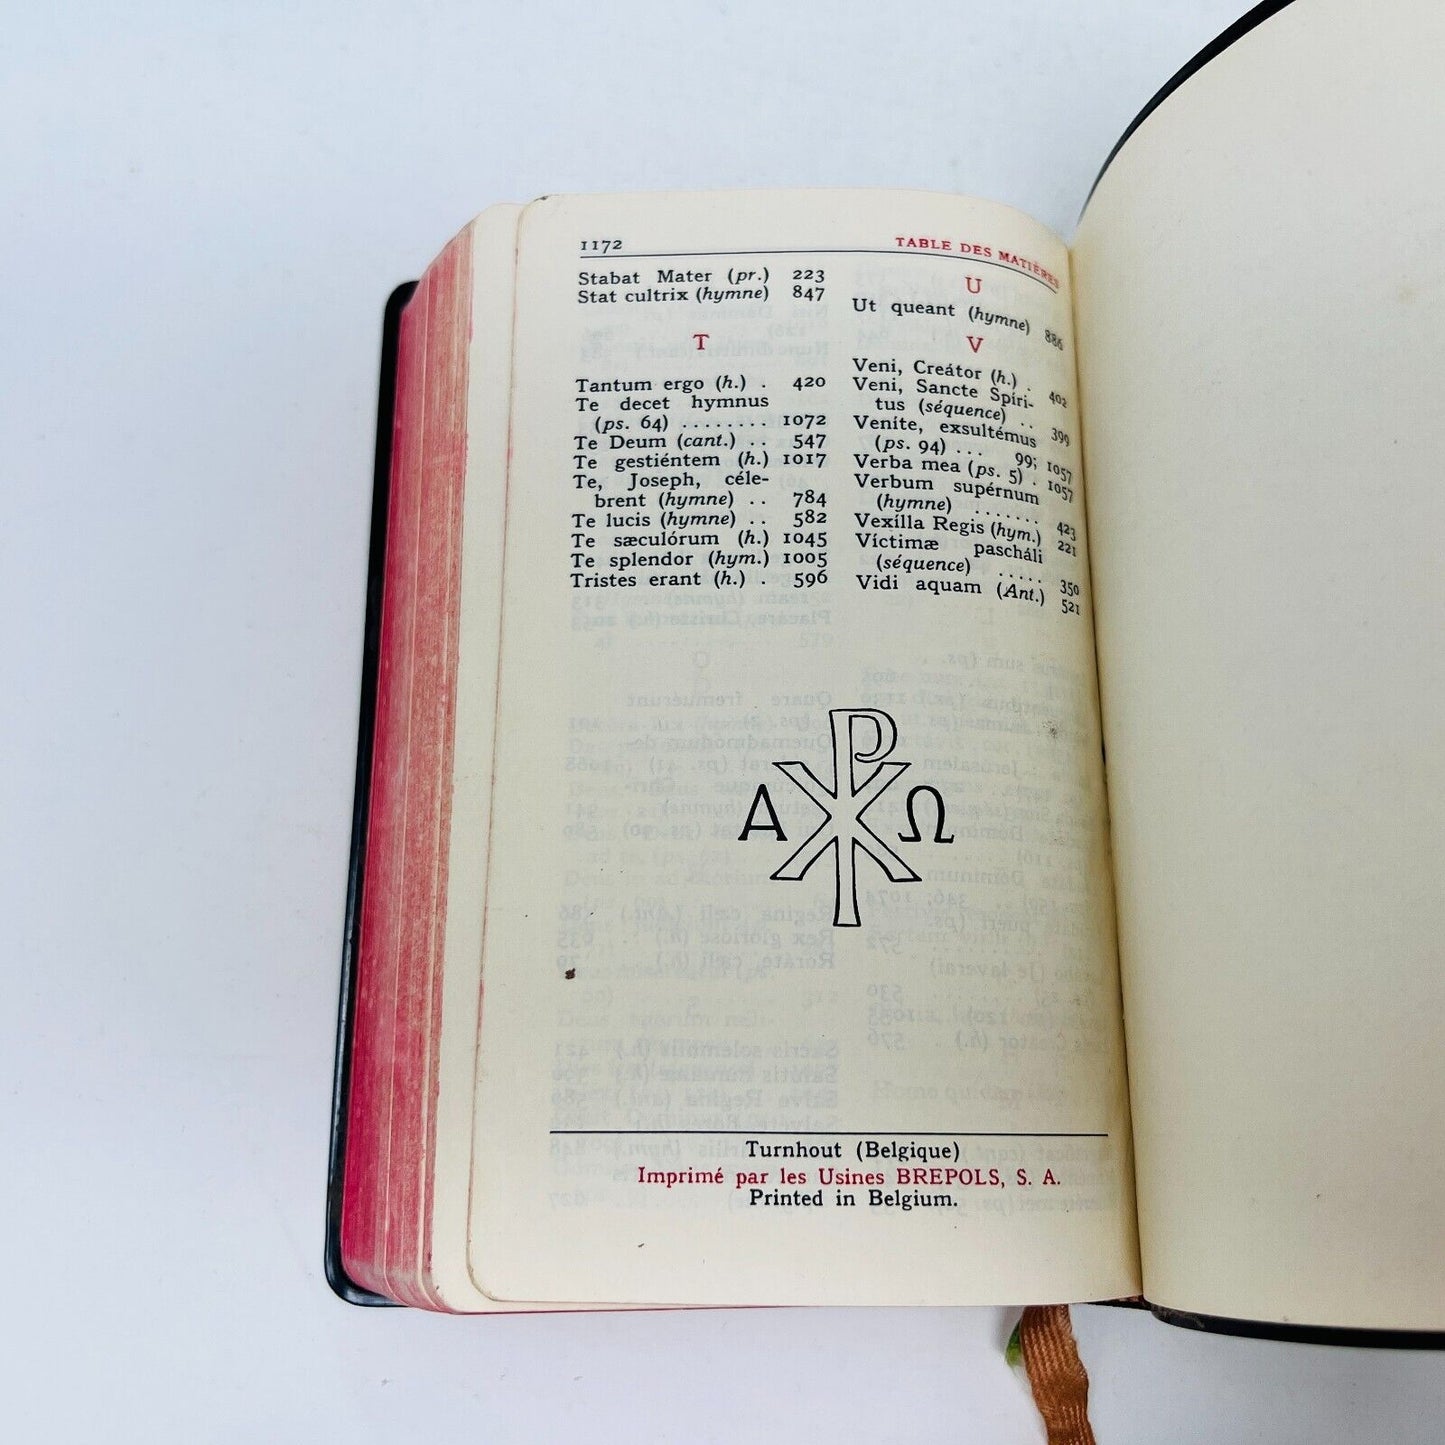 1172 TABLE DES MATIÈRES
Stabat Mater (pr.) 223
Stat cultrix (hymne) 847
T
Tantum ergo (h.) . 420
Te decet hymnus
(ps. 64) ........ 1072
Te Deum (cant.) .. 547
Te gestiéntem (h.) 1017
Te, Joseph, céle-
brent (hymne) .. 784
Te lucis (hymne) .. 582
Te sæculórum (h.) 1045
Te splendor (hym.) 1005
Tristes erant (h.) . 596
U
Ut queant (hymne) 886
V
Veni, Creátor (h.) . 402
Veni, Sancte Spíri-
tus (séquence) .. 399
Venite, exsultémus
(ps. 94) ... 99; 1057
Verba mea (ps. 5) . 1057
Verbum supérnum
(hymne) ....... 423
Vexílla Regis (hym.) 221
Víctimæ pascháli
(séquence) ..... 350
Vidi aquam (Ant.) 521
Α Ω
Turnhout (Belgique)
Imprimé par les Usines BREPOLS, S. A.
Printed in Belgium.